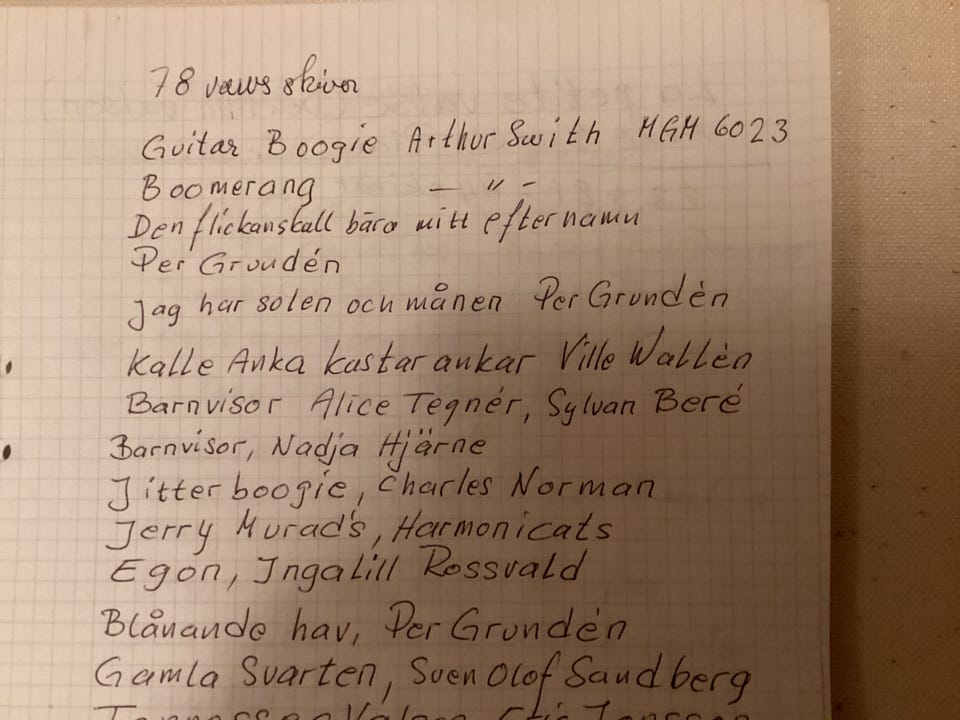 78 varvs skivor
Guitar Boogie Arthur Smith MGM 6023
Boomerang — " –
Den flickan skall bära mitt efternamn
Per Grundén
Jag har solen och månen Per Grundén
Kalle Anka kastar ankar Ville Wallén
Barnvisor Alice Tegnér, Sylvan Beré
Barnvisor, Nadja Hjärne
Jitterboogie, Charles Norman
Jerry Murad's, Harmonicats
Egon, Ingalill Rossvald
Blånande hav, Per Grundén
Gamla Svarten, Sven Olof Sandberg